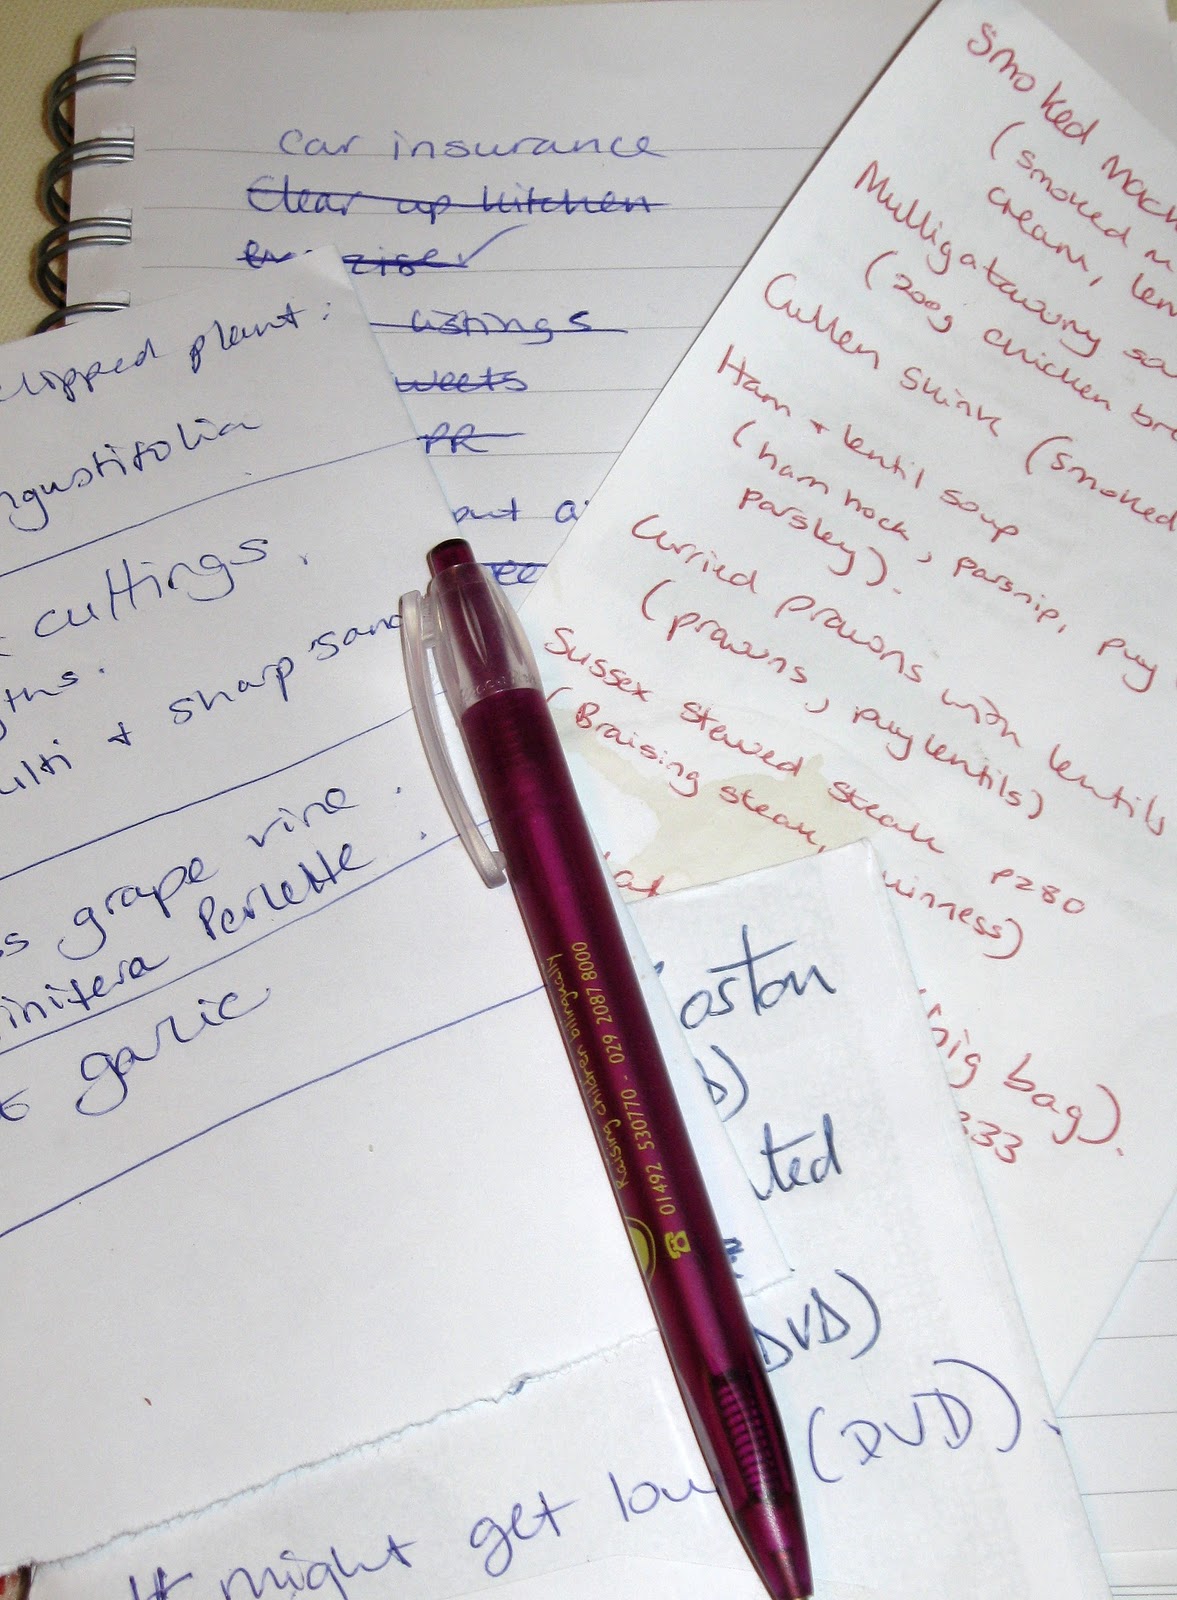 Car insurance
Clear up kitchen
listings
weets
PR
clipped plant:
ngustifolia
cuttings.
ths.
ulti + sharp sand
s grape vine.
inifera Perlette.
garlic
Smoked mack
(smoked m
cream, len
Mulligatawny sou
(200g chicken bre
Cullen skink (smoked
Ham + lentil soup
(ham hock, parsnip, puy
parsley).
Curried prawns with lentils
(prawns, puy lentils)
Sussex stewed steak P280
(Braising steak, uinness)
big bag).
333
oston
ted
DVD)
It might get lou (DVD).
Raising children bilingually
01492 530770 - 029 2087 8000